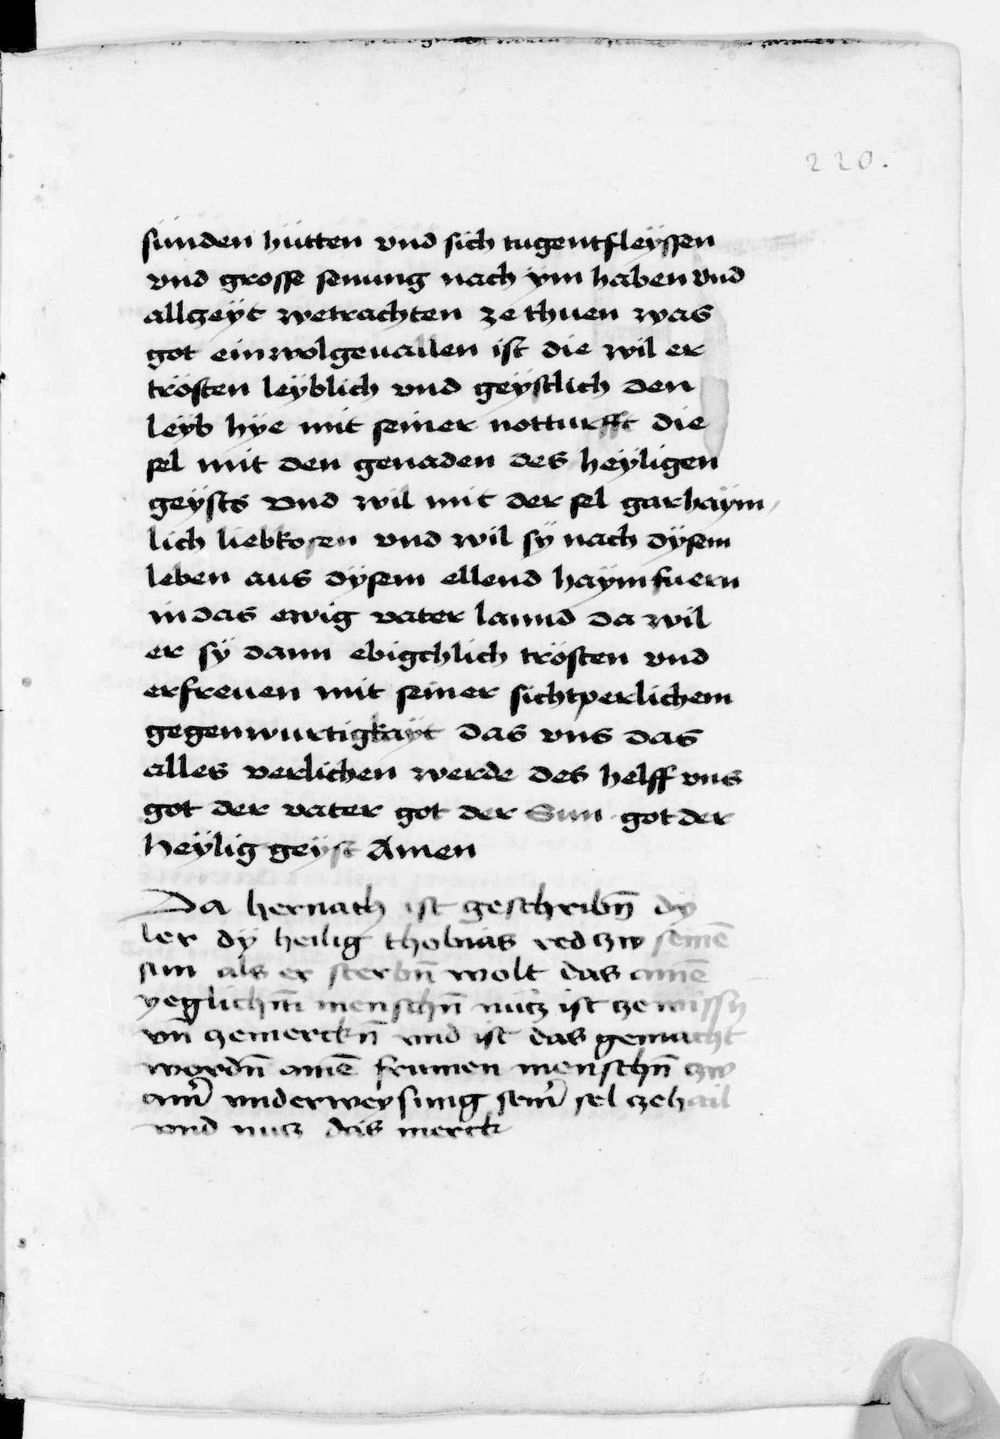 220.
sünden hütten vnd sich tugentfleÿssen
vnd grosse senung nach ÿm haben vnd
allczeÿt wetrachten ze thuen was
got ein wolgeuallen ist die wil er
trösten leÿblich vnd geÿstlich den
leÿb hÿe mit seiner notturfft die
sel mit den genaden des heÿligen
geÿsts vnd wil mit der sel gar haÿm
lich liebkosen vnd wil sÿ nach dÿsem
leben aus dÿsem ellend haÿm fuern
in das ewig vater lannd da wil
er sÿ dann ebigchlich trösten vnd
erfreuen mit seiner sichtperlichem
gegenwurtigkaÿt das vns das
alles verlichen werde des helff vns
got der vater got der Sun got der
heÿlig geÿst Amen
Da hernach ist geschribn̄ dÿ
ler dÿ heilig thobias red czw seinē
sun als er sterbn̄ wolt das ainē
yeglichm̄ menschn̄ nücz ist cze wissn
vn̄ czemerckn̄ vnd ist das gemacht
wordn̄ ainē frumen menschn̄ czw
ain̄ vnderweysung sein̄ sel czehail
vnd nucz das merck